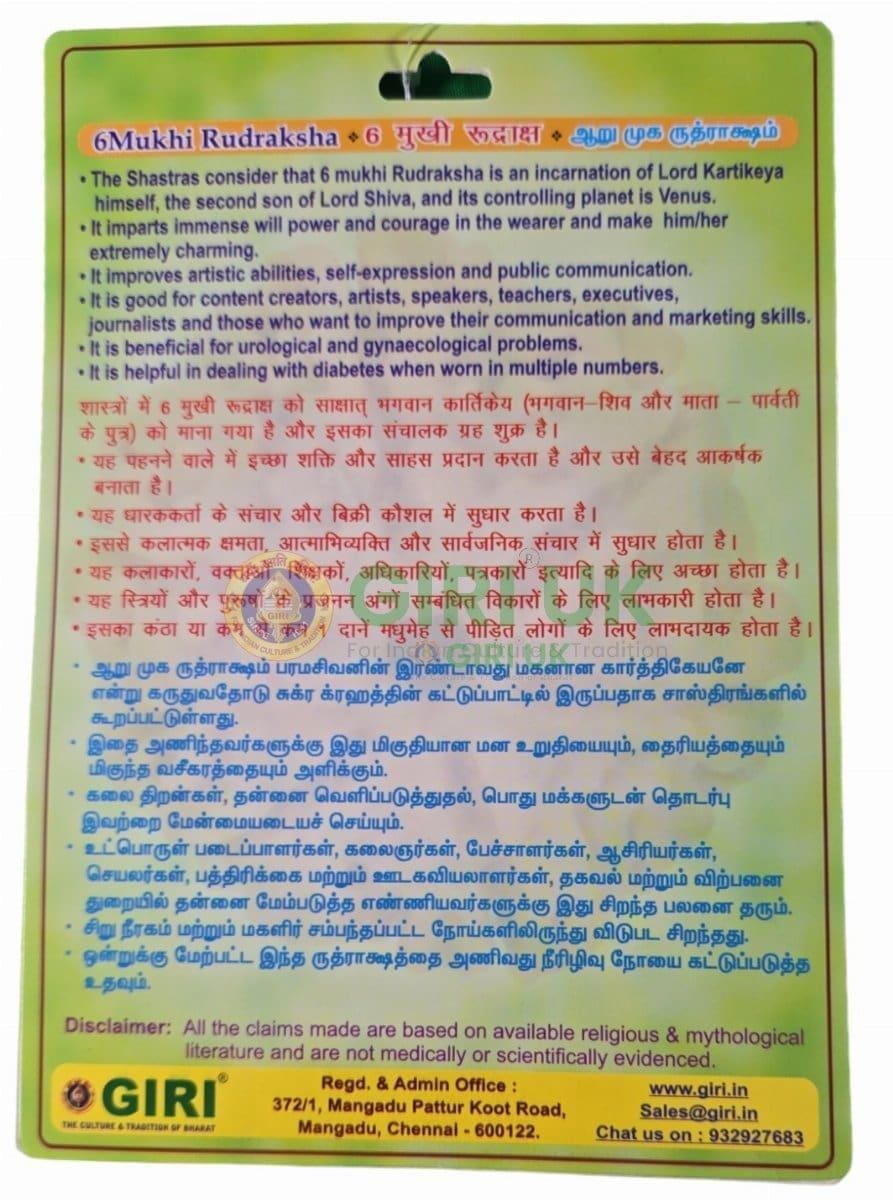 6Mukhi Rudraksha ❖ 6 मुखी रूद्राक्ष ❖ ஆறு முக ருத்ராக்ஷம்
• The Shastras consider that 6 mukhi Rudraksha is an incarnation of Lord Kartikeya
himself, the second son of Lord Shiva, and its controlling planet is Venus.
• It imparts immense will power and courage in the wearer and make him/her
extremely charming.
• It improves artistic abilities, self-expression and public communication.
• It is good for content creators, artists, speakers, teachers, executives,
journalists and those who want to improve their communication and marketing skills.
• It is beneficial for urological and gynaecological problems.
• It is helpful in dealing with diabetes when worn in multiple numbers.
शास्त्रों में 6 मुखी रूद्राक्ष को साक्षात् भगवान कार्तिकेय (भगवान–शिव और माता – पार्वती
के पुत्र) को माना गया है और इसका संचालक ग्रह शुक्र है।
• यह पहनने वाले में इच्छा शक्ति और साहस प्रदान करता है और उसे बेहद आकर्षक
बनाता है।
• यह धारककर्ता के संचार और बिक्री कौशल में सुधार करता है।
• इससे कलात्मक क्षमता, आत्माभिव्यक्ति और सार्वजनिक संचार में सुधार होता है।
• यह कलाकारों, अधिकारियों, पत्रकारों इत्यादि के लिए अच्छा होता है।
• यह स्त्रियों और पुरूषों के प्रजनन अंगों सम्बंधित विकारों के लिए लाभकारी होता है।
• इसका कंठा या दाने मधुमेह से पीड़ित लोगों के लिए लाभदायक होता है।
GIRI UK ®
For Indian Culture & Tradition
GIRI UK
GIRI
• ஆறு முக ருத்ராக்ஷம் பரமசிவனின் இரண்டாவது மகனான கார்த்திகேயனே
என்று கருதுவதோடு சுக்ர க்ரஹத்தின் கட்டுப்பாட்டில் இருப்பதாக சாஸ்திரங்களில்
கூறப்பட்டுள்ளது.
• இதை அணிந்தவர்களுக்கு இது மிகுதியான மன உறுதியையும், தைரியத்தையும்
மிகுந்த வசீகரத்தையும் அளிக்கும்.
• கலை திறன்கள், தன்னை வெளிப்படுத்துதல், பொது மக்களுடன் தொடர்பு
இவற்றை மேன்மையடையச் செய்யும்.
• உட்பொருள் படைப்பாளர்கள், கலைஞர்கள், பேச்சாளர்கள், ஆசிரியர்கள்,
செயலர்கள், பத்திரிக்கை மற்றும் ஊடகவியலாளர்கள், தகவல் மற்றும் விற்பனை
துறையில் தன்னை மேம்படுத்த எண்ணியவர்களுக்கு இது சிறந்த பலனை தரும்.
• சிறு நீரகம் மற்றும் மகளிர் சம்பந்தப்பட்ட நோய்களிலிருந்து விடுபட சிறந்தது.
• ஒன்றுக்கு மேற்பட்ட இந்த ருத்ராக்ஷத்தை அணிவது நீரிழிவு நோயை கட்டுப்படுத்த
உதவும்.
Disclaimer: All the claims made are based on available religious & mythological
literature and are not medically or scientifically evidenced.
GIRI®
THE CULTURE & TRADITION OF BHARAT
Regd. & Admin Office :
372/1, Mangadu Pattur Koot Road,
Mangadu, Chennai - 600122.
www.giri.in
Sales@giri.in
Chat us on : 932927683